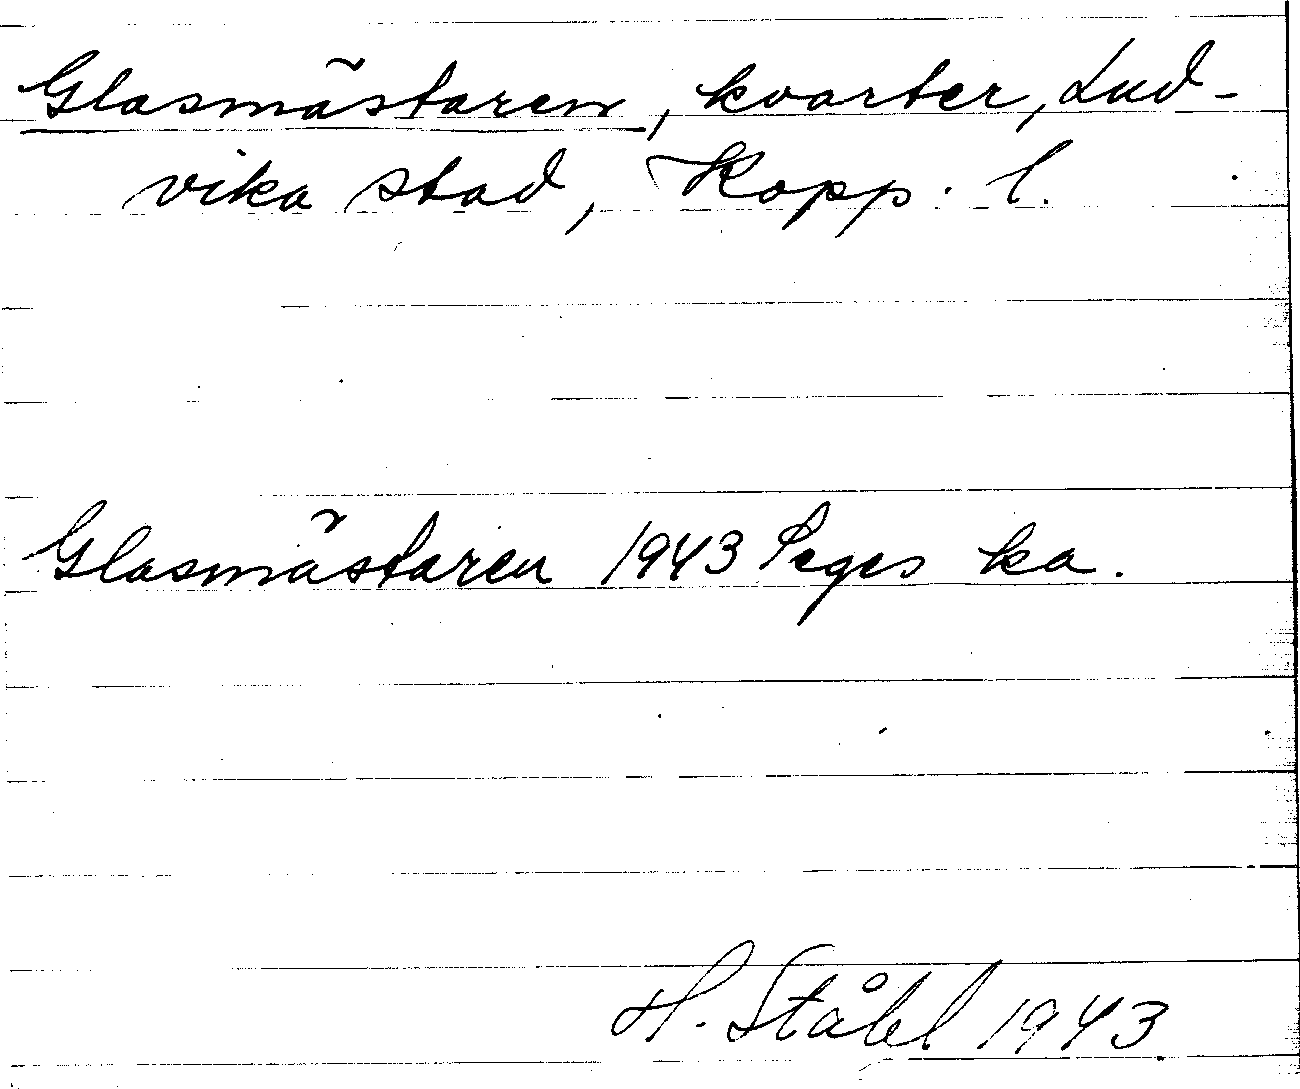 Glasmästaren, kvarter, Lud-
vika stad, Kopp. l.
Glasmästaren 1943 Seges ka.
H. Ståhl 1943.